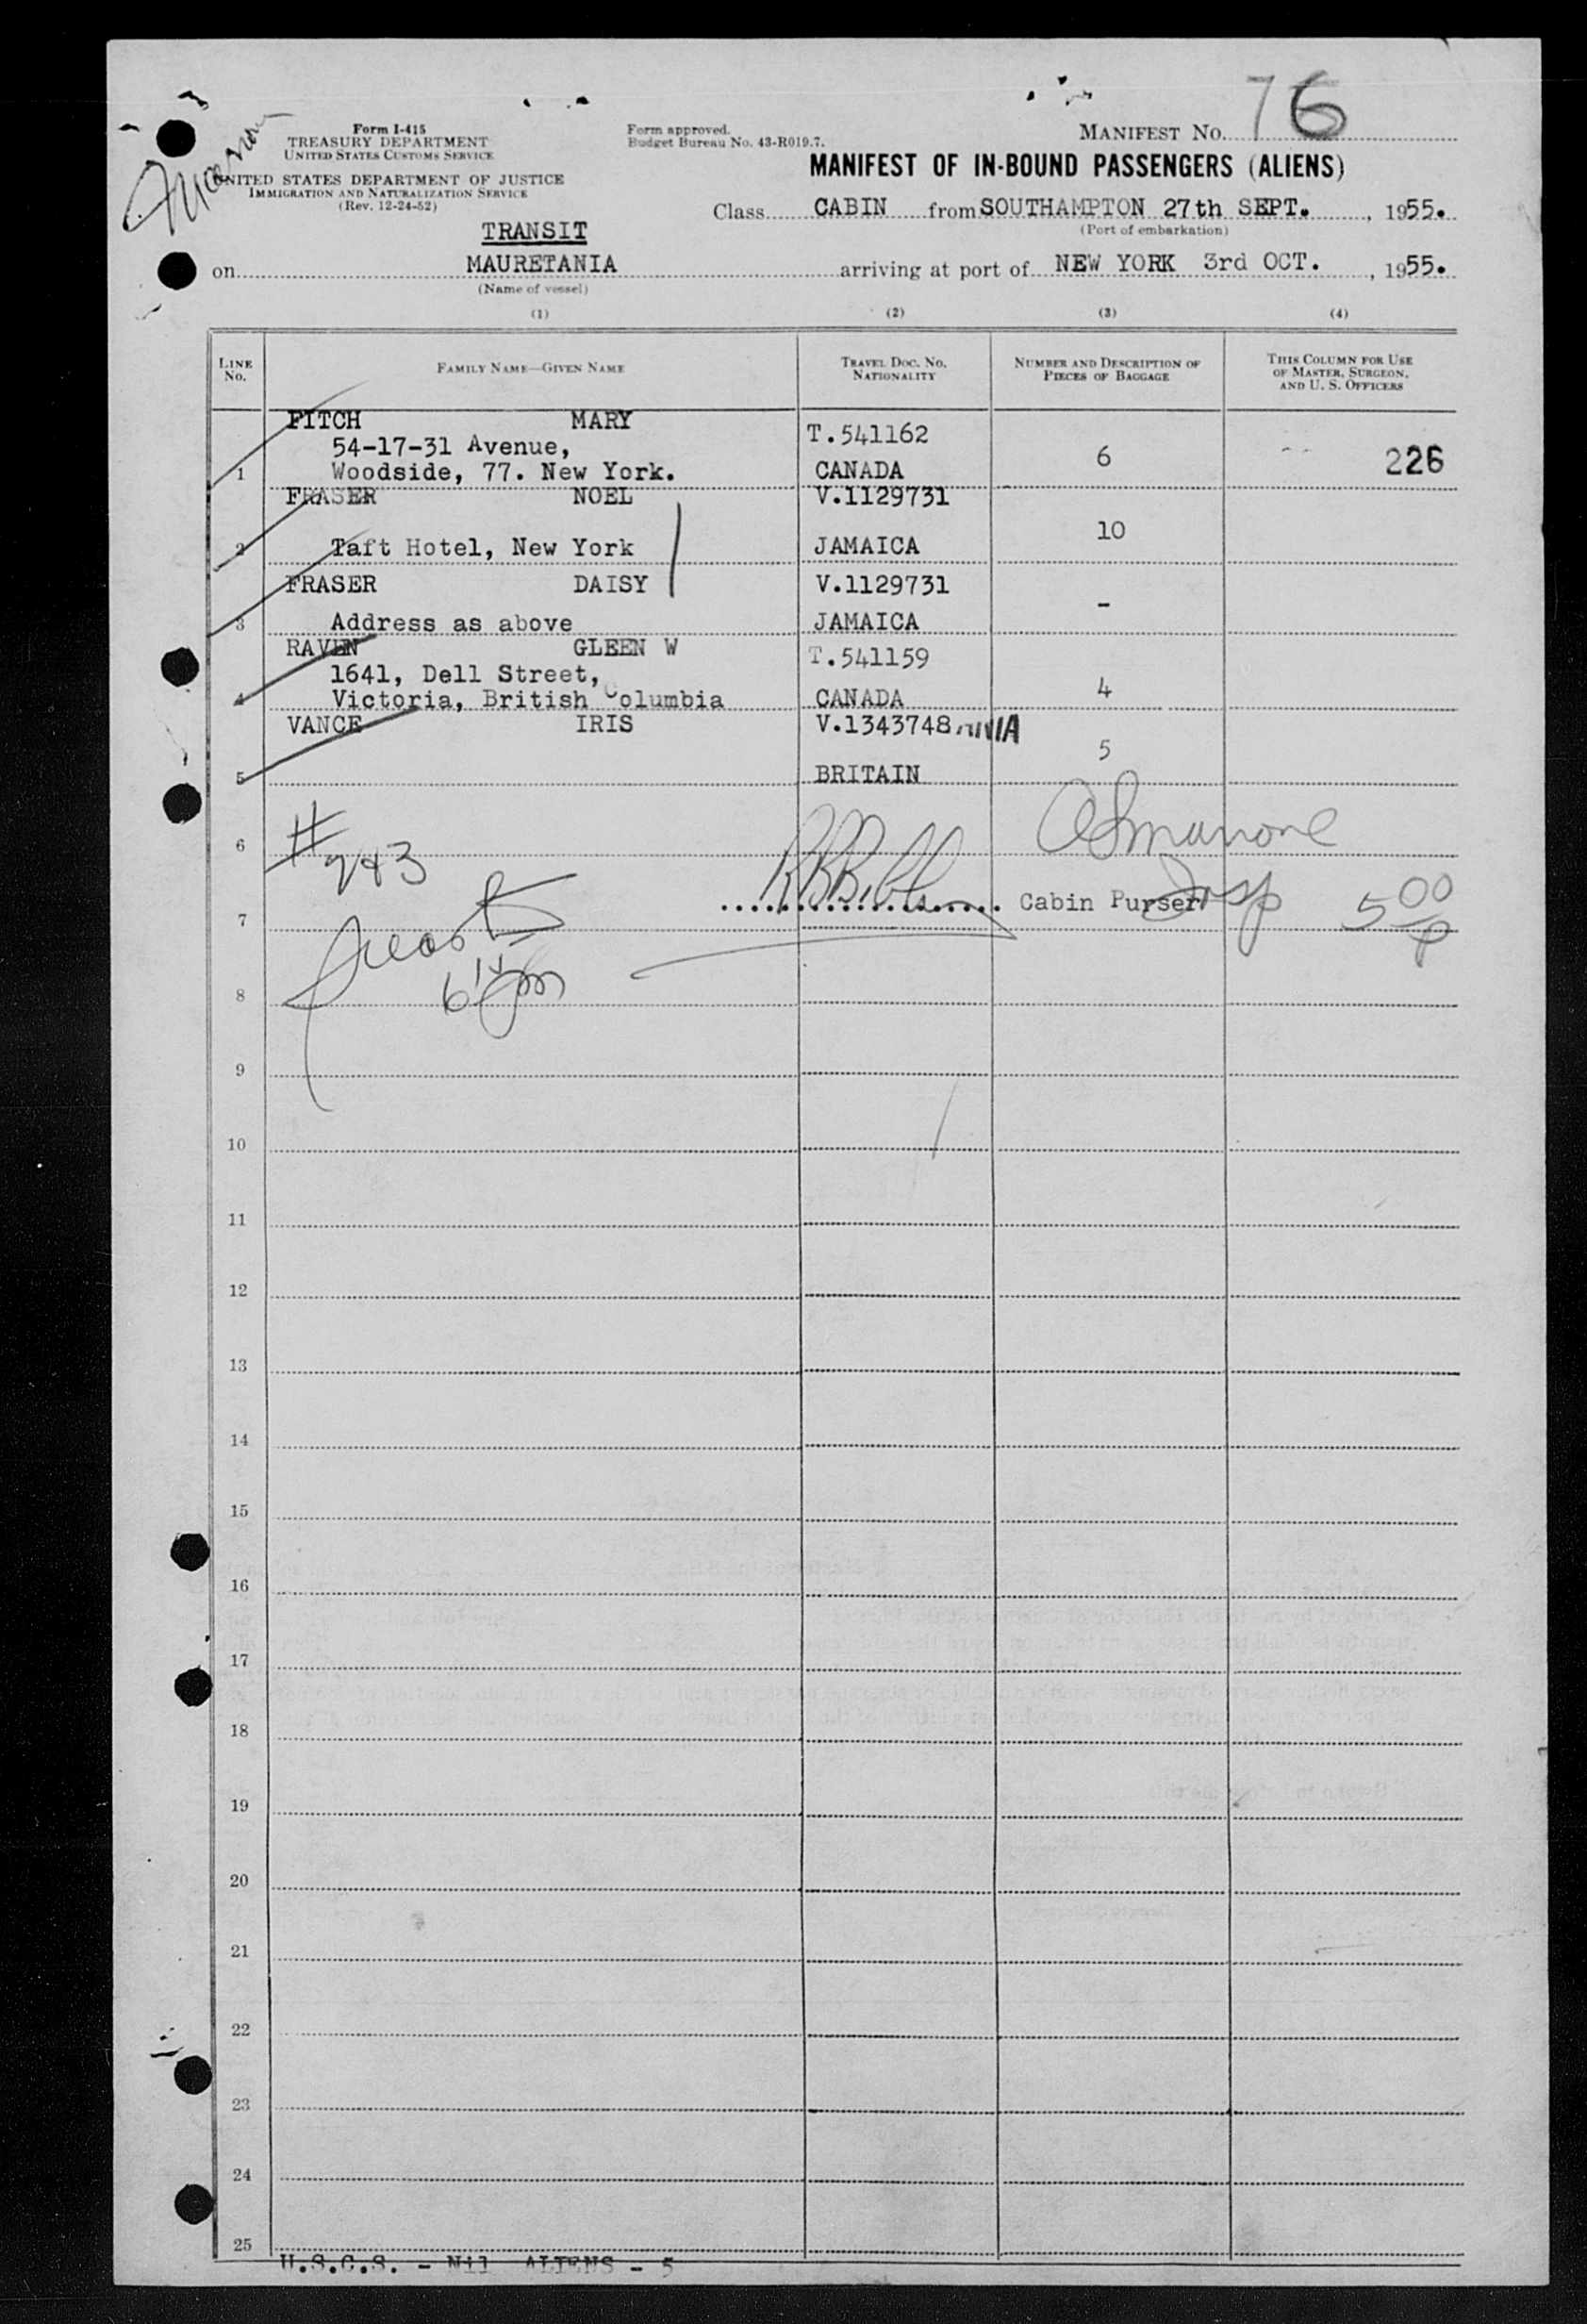 Form I-415
TREASURY DEPARTMENT
UNITED STATES CUSTOMS SERVICE
UNITED STATES DEPARTMENT OF JUSTICE
IMMIGRATION AND NATURALIZATION SERVICE
(Rev. 12-24-52)
Form approved.
Budget Bureau No. 43-R019.7.
MANIFEST NO. 76
MANIFEST OF IN-BOUND PASSENGERS (ALIENS)
Class CABIN from SOUTHAMPTON 27th SEPT. , 1955.
(Port of embarkation)
TRANSIT
on MAURETANIA arriving at port of NEW YORK 3rd OCT. , 1955.
(Name of vessel)
(1) (2) (3) (4)
LINE No. FAMILY NAME—GIVEN NAME TRAVEL DOC. NO. NATIONALITY NUMBER AND DESCRIPTION OF PIECES OF BAGGAGE THIS COLUMN FOR USE OF MASTER, SURGEON, AND U. S. OFFICERS
FITCH MARY T.541162
54-17-31 Avenue,
1 Woodside, 77. New York. CANADA 6 226
FRASER NOEL V.1129731
2 Taft Hotel, New York JAMAICA 10
FRASER DAISY V.1129731
3 Address as above JAMAICA -
RAVEN GLEEN W T.541159
1641, Dell Street,
4 Victoria, British Columbia CANADA 4
VANCE IRIS V.1343748
5 BRITAIN 5
6
#243
7 Cabin Purser 5 00
8
9
10
11
12
13
14
15
16
17
18
19
20
21
22
23
24
25
U.S.C.S. - Nil ALIENS - 5